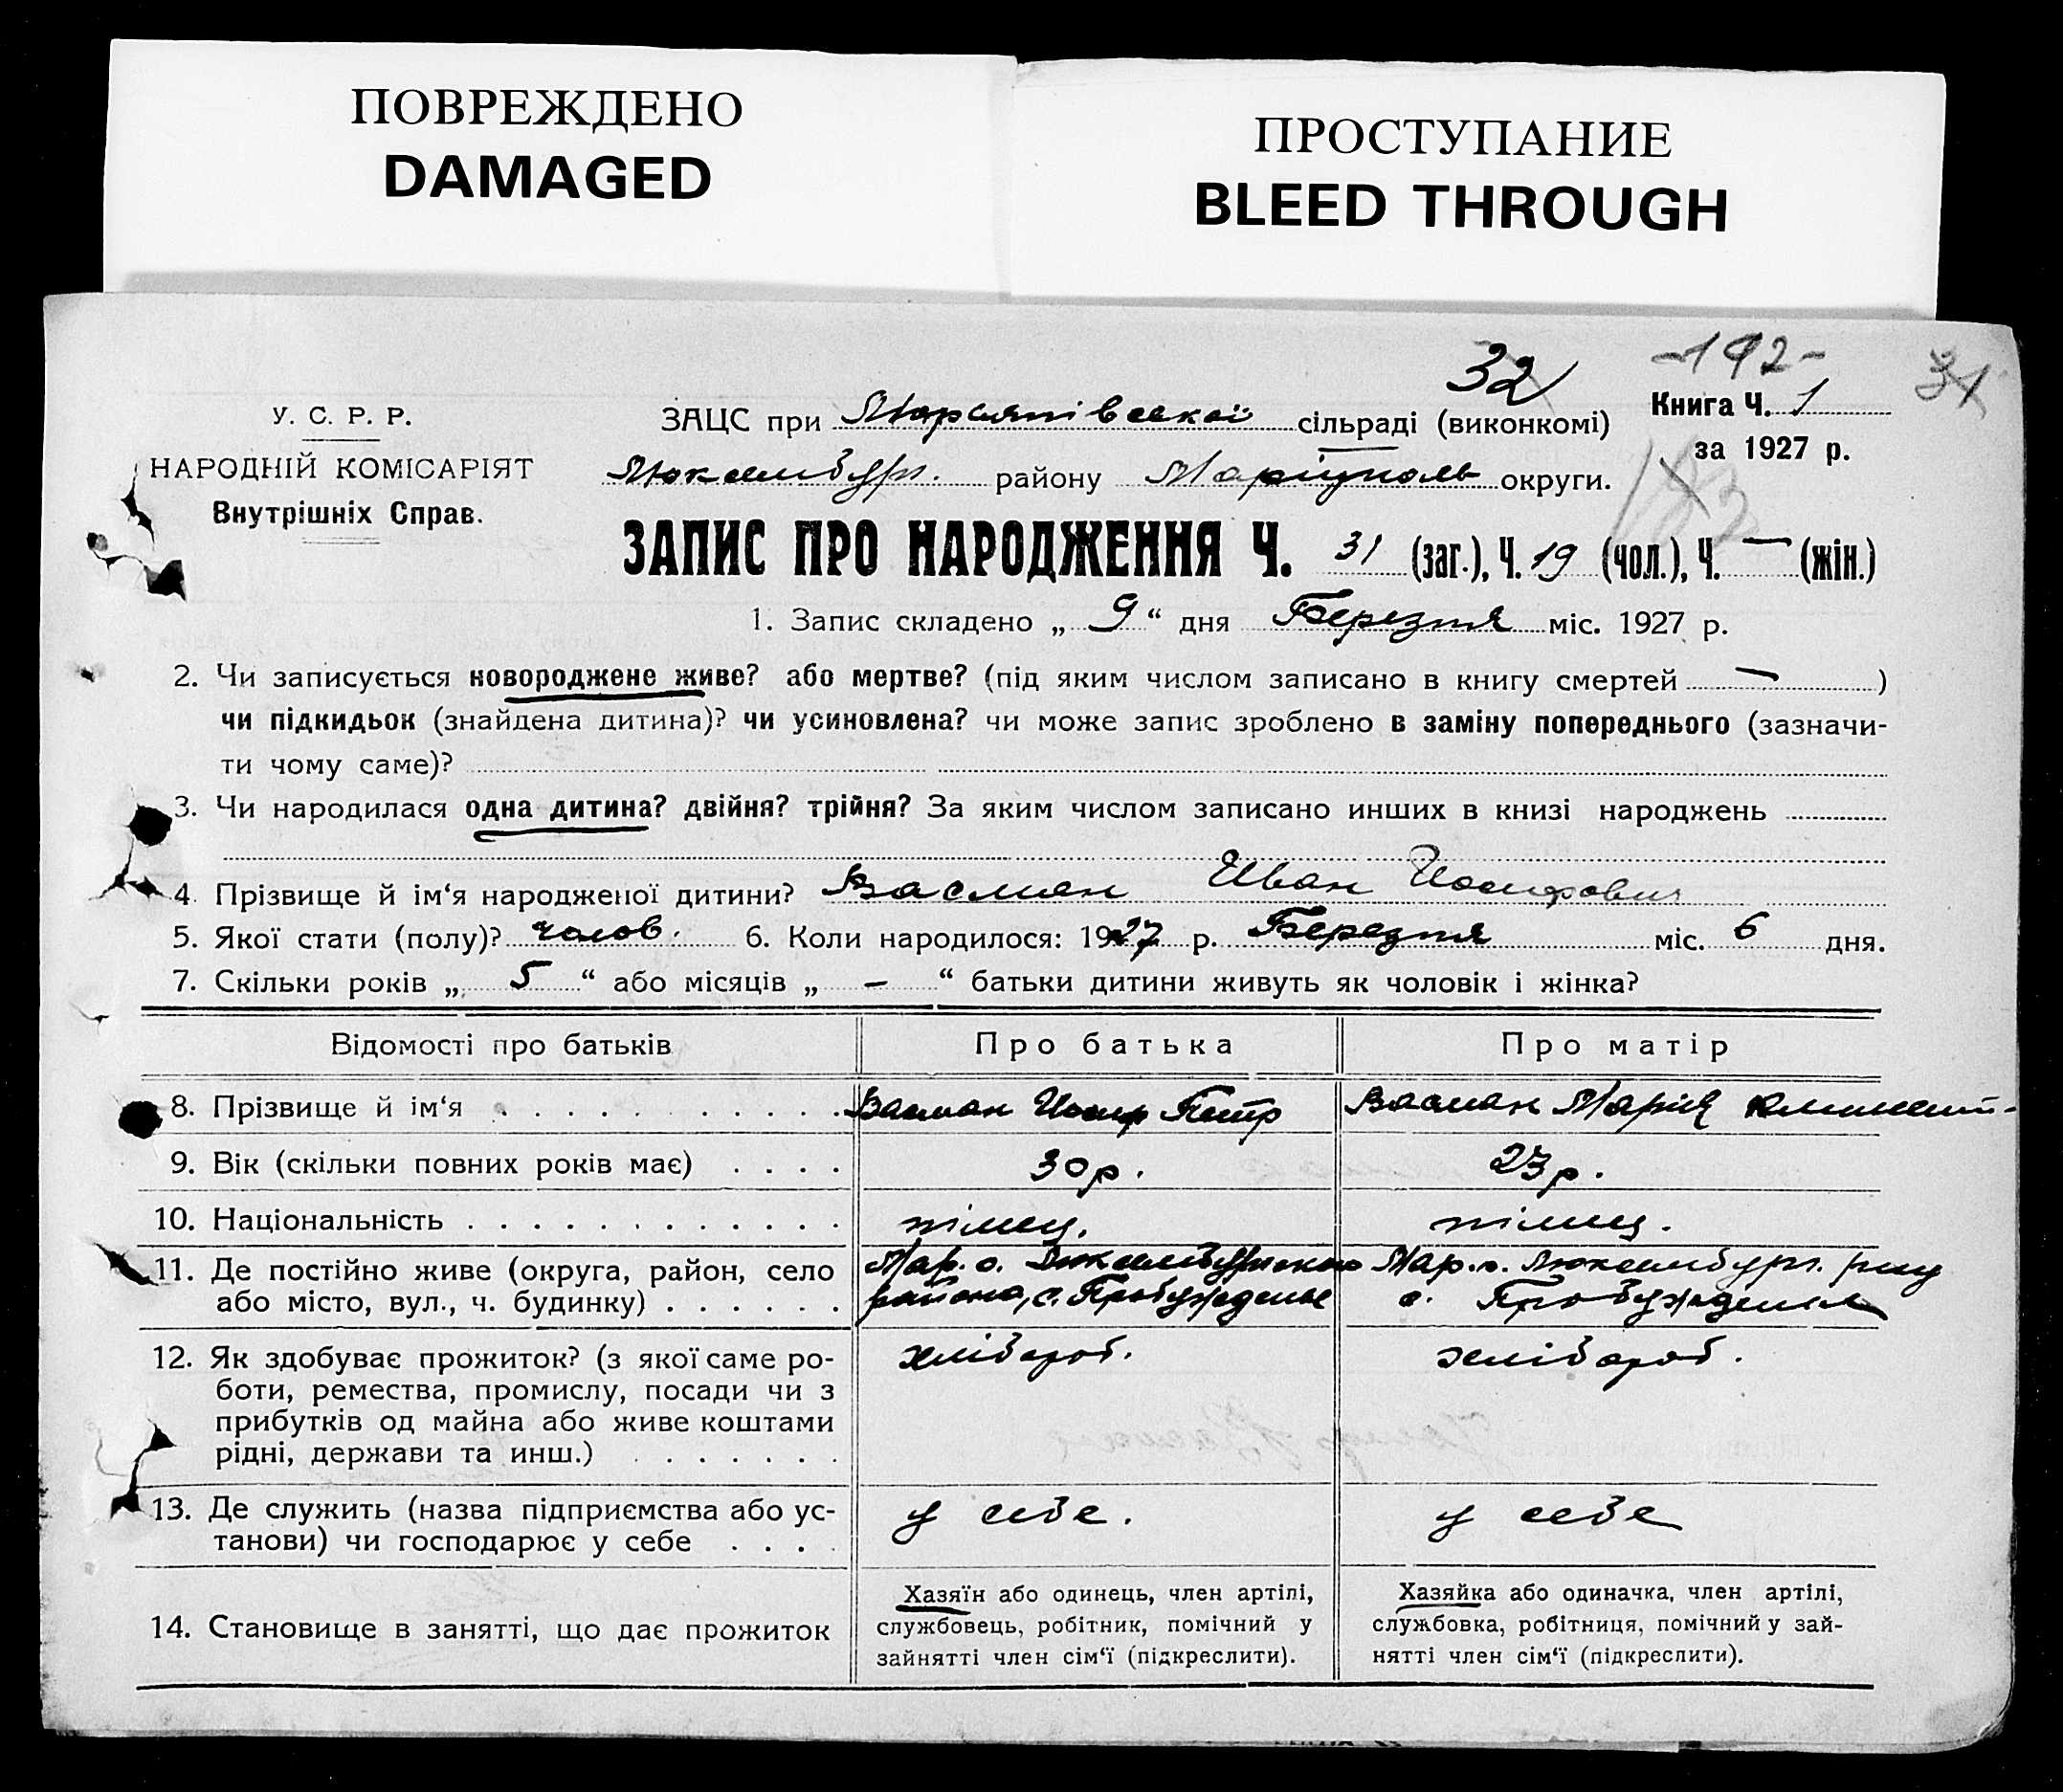 ПОВРЕЖДЕНО
DAMAGED
ПРОСТУПАНИЕ
BLEED THROUGH
-192-
32
31
У. С. Р. Р.
НАРОДНІЙ КОМІСАРІЯТ
Внутрішніх Справ.
ЗАЦС при сільраді (виконкомі)
Люксембург. району Маріуполь округи.
Книга Ч. 1
за 1927 р.
183
ЗАПИС ПРО НАРОДЖЕННЯ Ч. 31 (заг.), Ч. 19 (чол.), Ч. — (жін.)
1. Запис складено „ 9 “ дня Березня міс. 1927 р.
2. Чи записується новороджене живе? або мертве? (під яким числом записано в книгу смертей — )
чи підкидьок (знайдена дитина)? чи усиновлена? чи може запис зроблено в заміну попереднього (зазначи-
ти чому саме)?
3. Чи народилася одна дитина? двійня? трійня? За яким числом записано инших в книзі народжень
4. Прізвище й ім‘я народженої дитини? Васман Иван Иосифович
5. Якої стати (полу)? чолов. 6. Коли народилося: 1927 р. Березня міс. 6 дня.
7. Скільки років „ 5 “ або місяців „ – “ батьки дитини живуть як чоловік і жінка?
Відомості про батьків Про батька Про матір
8. Прізвище й ім‘я Васман Иосиф Петр Васман Мария
9. Вік (скільки повних років має) 30 р. 23 р.
10. Національність німец. німец.
11. Де постійно живе (округа, район, село Мар. о. Люксембургского Мар. о. Люксембург. р-ну
або місто, вул., ч. будинку) района, с. Пробуждение с. Пробуждения
12. Як здобуває прожиток? (з якої саме ро- хлібороб. хлібороб.
боти, ремества, промислу, посади чи з
прибутків од майна або живе коштами
рідні, держави та инш.)
13. Де служить (назва підприємства або ус- у себе. у себе
танови) чи господарює у себе
14. Становище в занятті, що дає прожиток
Хазяїн або одинець, член артілі,
службовець, робітник, помічний у
зайнятті член сім‘ї (підкреслити).
Хазяйка або одиначка, член артілі,
службовка, робітниця, помічний у зай-
нятті член сім‘ї (підкреслити).